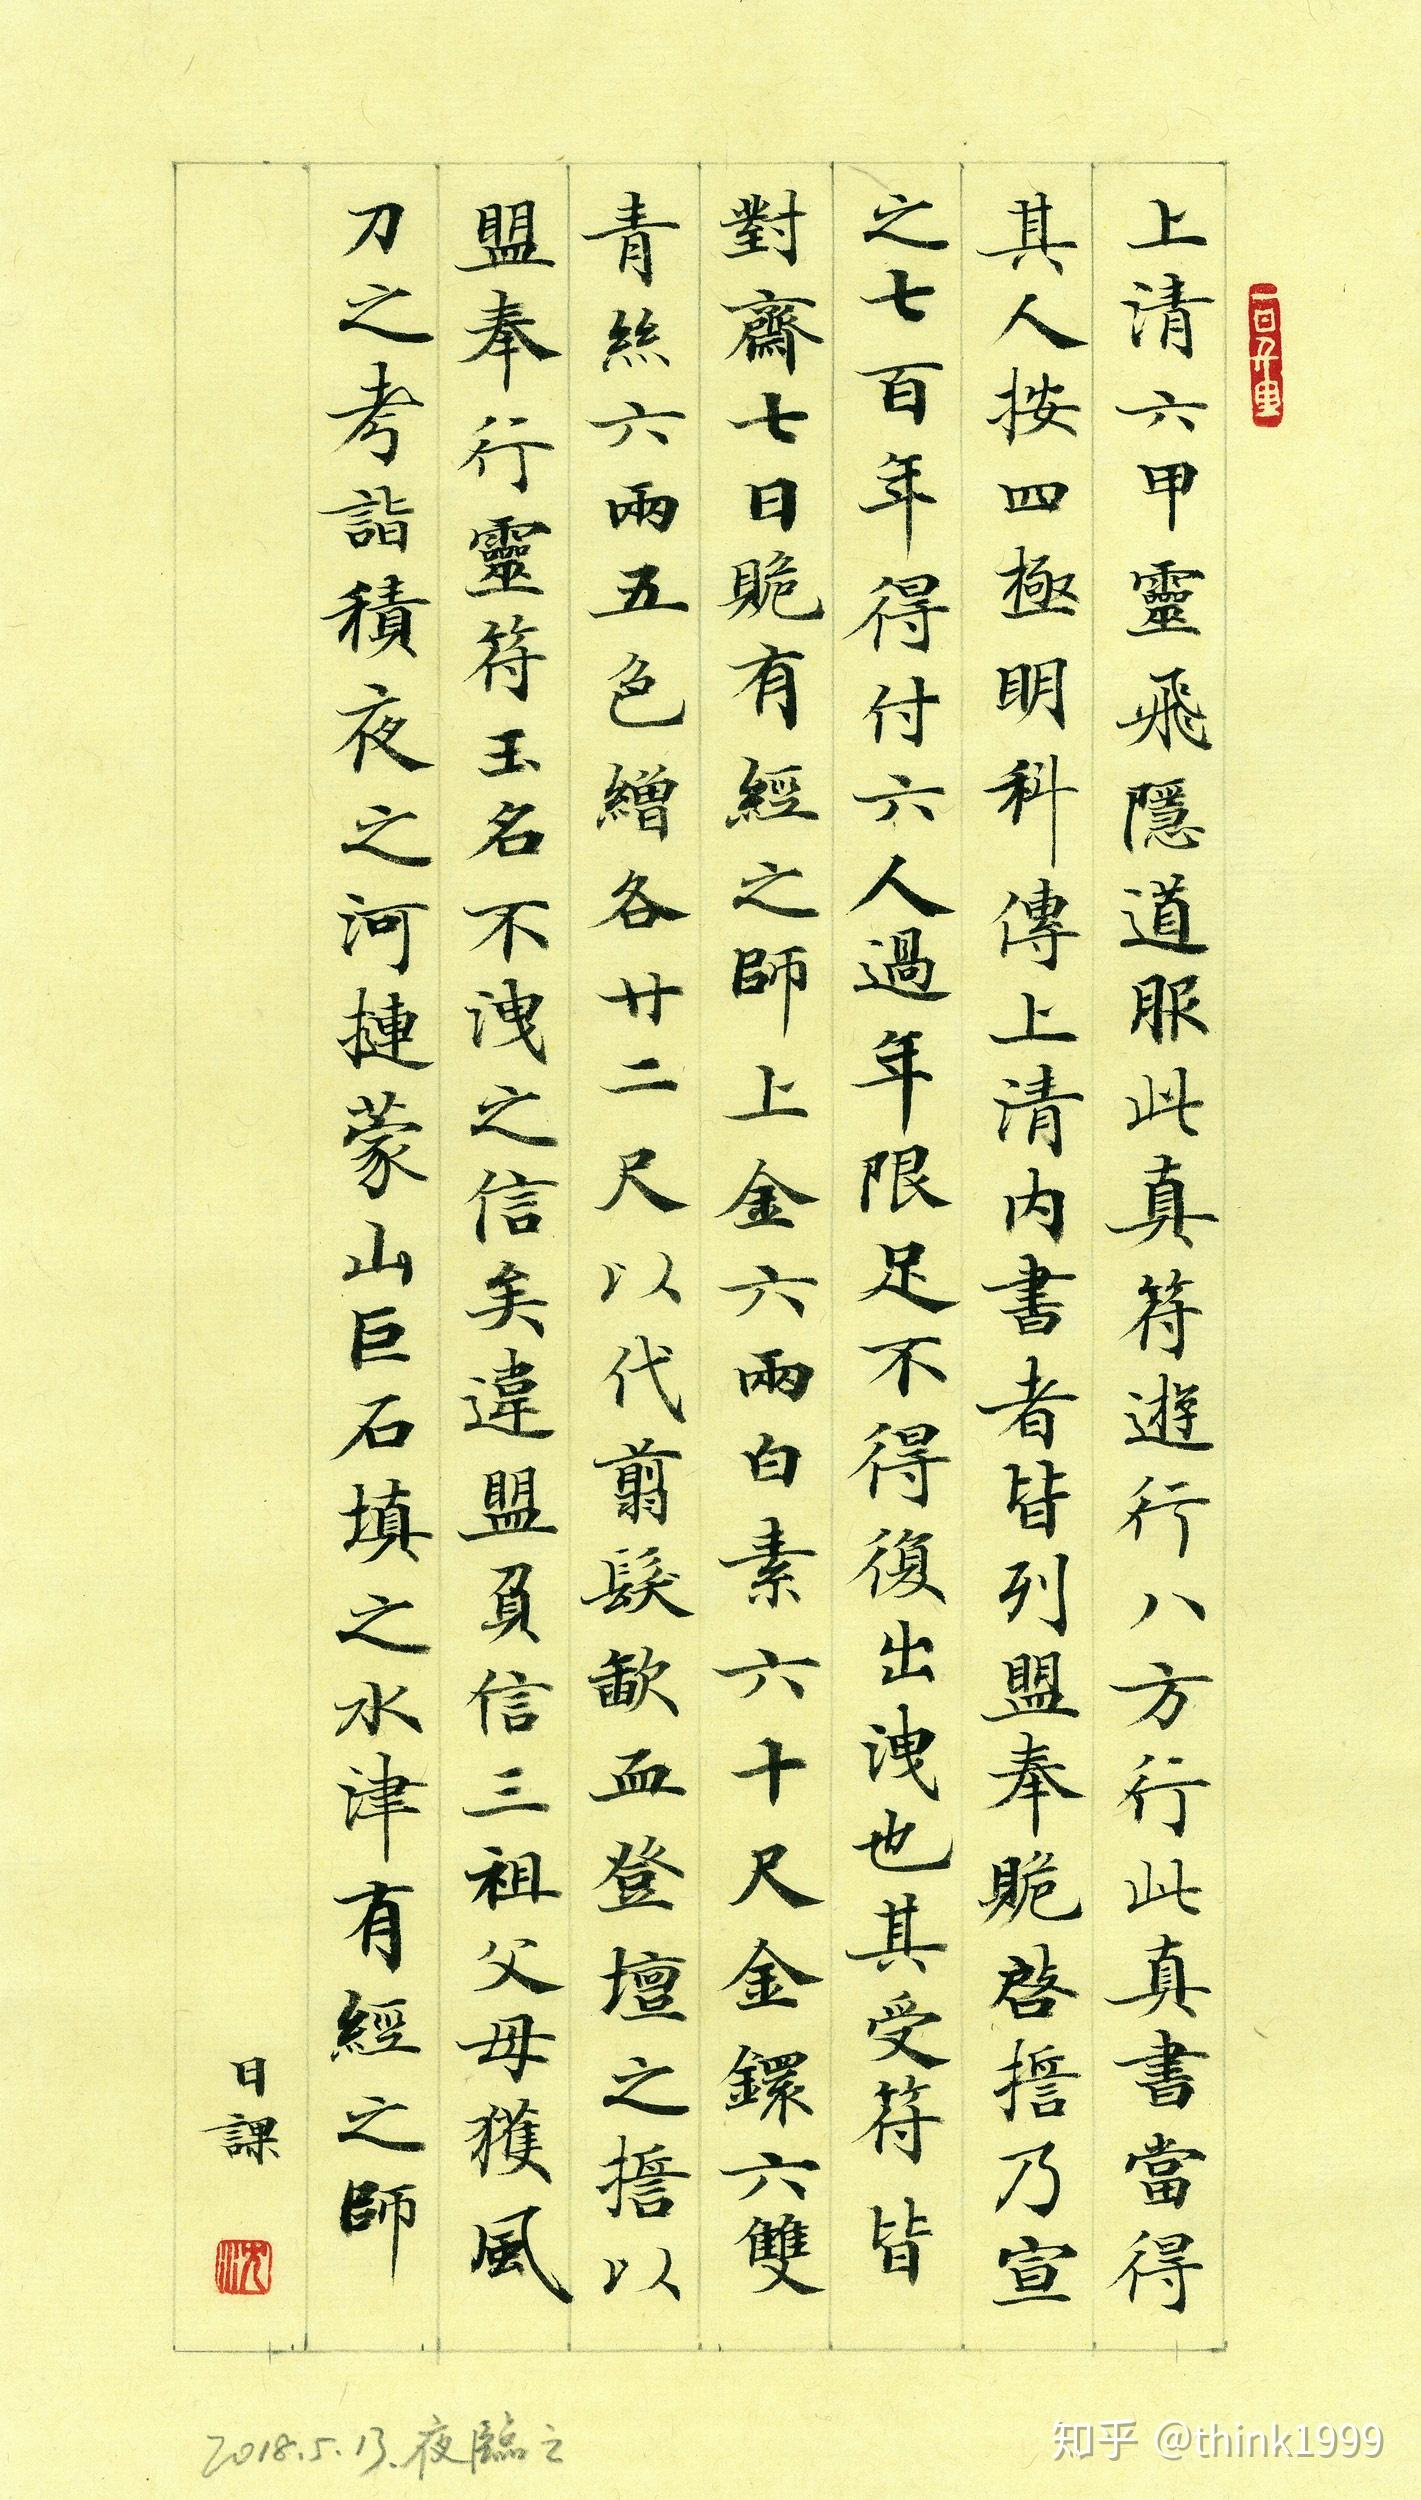 上清六甲靈飛隱道服此真符遊行八方行此真書當得
其人按四極明科傳上清内書者皆列盟奉贍啓擔乃宣
之七百年得付六人過年限足不得復出洩也其受符皆
對齋七日贍有經之師上金六兩白素六十尺金鐶六雙
青絲六兩五色繒各廿二尺以代翦髮歃血登壇之誓以
盟奉行靈符玉名不洩之信矣違盟負信三祖父母獲風
刀之考詣積夜之河摙蒙山巨石填之水津有經之師
日課
沈
2018.5.13.夜臨之
知乎 @think1999